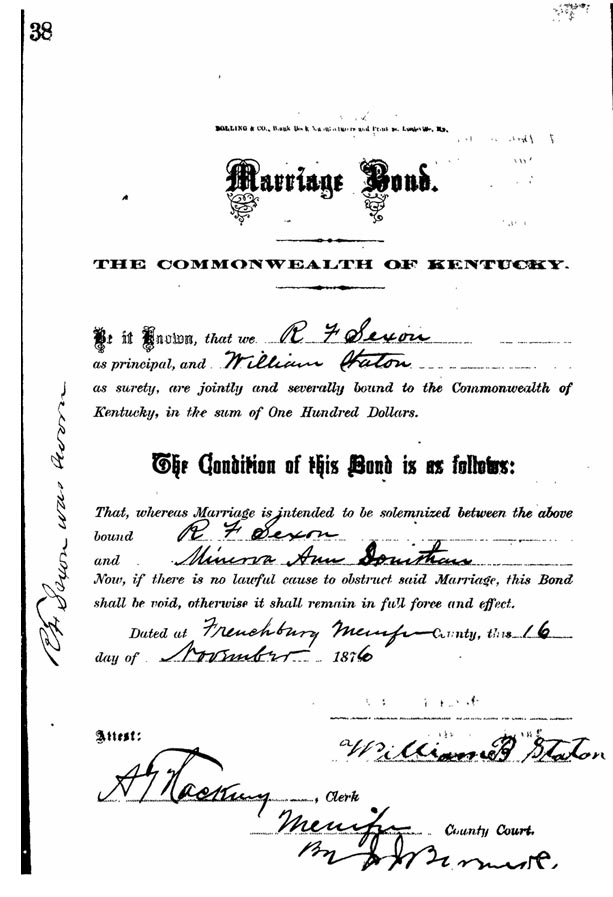 38
BOLLING & CO., Blank Book Manufacturers and Printers, Louisville, Ky.
Marriage Bond.
THE COMMONWEALTH OF KENTUCKY.
Be it Known, that we R F Sexon
as principal, and William Staton
as surety, are jointly and severally bound to the Commonwealth of
Kentucky, in the sum of One Hundred Dollars.
The Condition of this Bond is as follows:
That, whereas Marriage is intended to be solemnized between the above
bound R F Sexon
and Minerva Ann Donithan
Now, if there is no lawful cause to obstruct said Marriage, this Bond
shall be void, otherwise it shall remain in full force and effect.
Dated at Frenchburg Menifee County, this 16
day of November 1876
R F Sexon was sworn
Attest:
William B Staton
, Clerk
Menifee County Court.
By